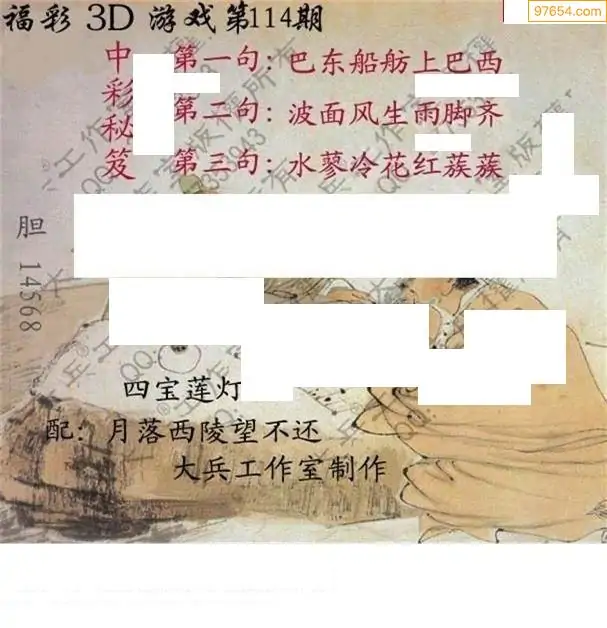 97654.com
福彩 3D 游戏第114期
中彩秘笈
第一句：巴东船舫上巴西
第二句：波面风生雨脚齐
第三句：水蓼冷花红蔟蔟
胆 14568
四宝莲灯
配：月落西陵望不还
大兵工作室制作